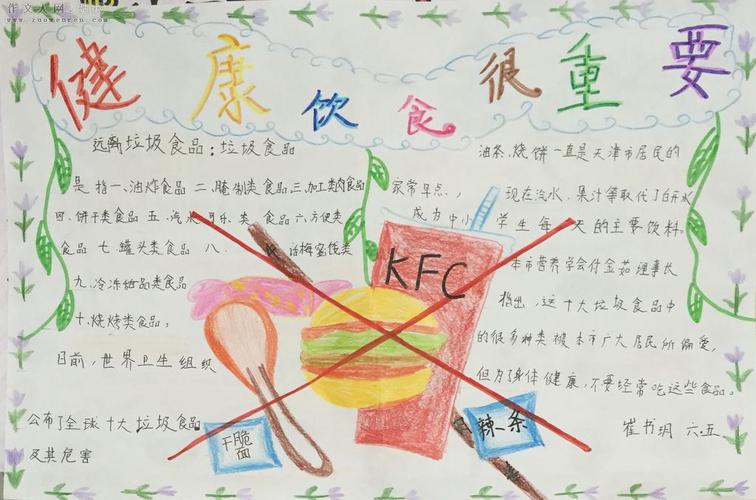 作文人网
www.zuowenren.com
健康饮食很重要
远离垃圾食品：垃圾食品
是指一、油炸食品 二、腌制类食品 三、加工类肉食品
四、饼干类食品 五、汽水可乐类食品 六、方便类
食品 七、罐头类食品 八、话梅蜜饯类
九、冷冻甜品类食品
十、烧烤类食品。
目前，世界卫生组织
公布了全球十大垃圾食品
及其危害
油条、烧饼一直是天津市居民的
家常早点，现在汽水、果汁等取代了白开水
成为中小学生每天的主要饮料。
本市营养学会付金如理事长
指出，这十大垃圾食品中
的很多种类被本市广大居民所偏爱，
但为了身体健康，不要经常吃这些食品。
崔书玥 六.五
KFC
干脆面
辣条